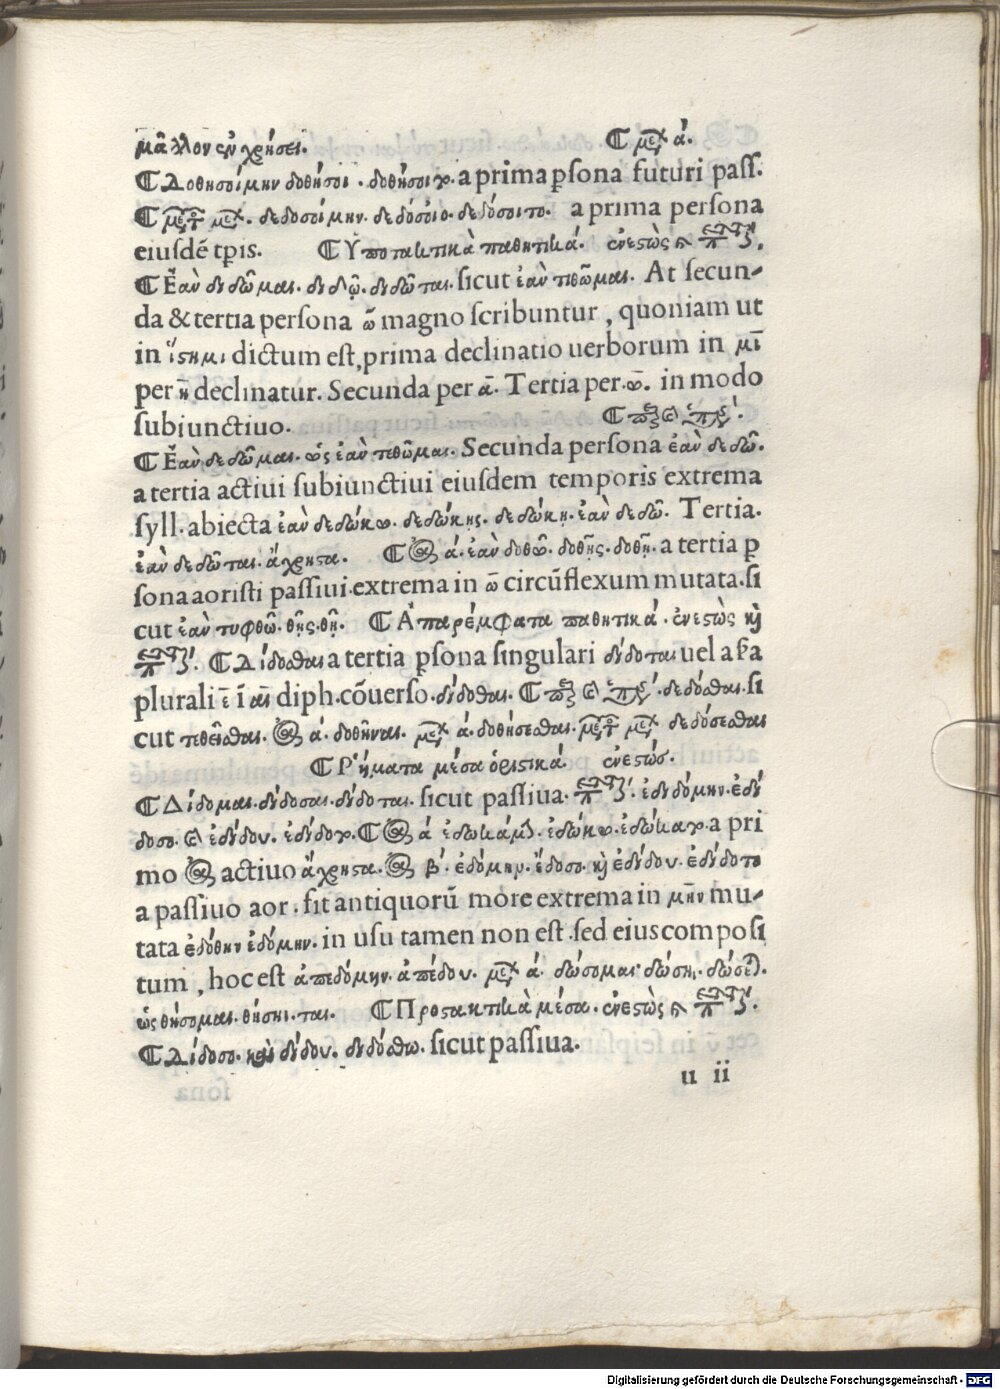 μᾶλλον ἐν χρήσει. ¶ μελ ά.
¶ Δοθησοίμην δοθήσοι. δοθήσοιτο. a prima ꝑsona futuri paſſ.
¶ μετ μελ. δεδοσοίμην. δεδόσοιο. δεδόσοιτο. a prima perſona
eiuſdē tꝑis. ¶ Υποτακτικὰ παθητικά. ἐνεστὼς
¶ Ἐὰν διδῶμαι. διδῷ. διδῶται. ſicut ἐὰν τιθῶμαι. At ſecun-
da & tertia perſona ω̄ magno ſcribuntur, quoniam ut
in ἵστημι dictum eſt, prima declinatio uerborum in μῑ
per η̄ declinatur. Secunda per ᾱ. Tertia per. ω̄. in modo
ſubiunctiuo.
¶ Ἐὰν δεδῶμαι. ὡς ἐὰν τεθῶμαι. Secunda perſona ἐὰν δεδῶ.
a tertia actiui ſubiunctiui eiuſdem temporis extrema
ſyll. abiecta ἐὰν δεδώκω. δεδώκῃς. δεδώκῃ. ἐὰν δεδῶ. Tertia.
ἐὰν δεδῶται. ἄχρηστα. ¶ ά. ἐὰν δοθῶ. δοθῇς. δοθῇ. a tertia ꝑ
ſona aoriſti paſſiui. extrema in ω̄ circūflexum mutata. ſi
cut ἐὰν τυφθῶ. θῇς. θῇ. ¶ Ἀπαρέμφατα παθητικά. ἐνεστὼς καὶ
¶ Δίδοσθαι a tertia ꝑſona ſingulari δίδοται uel a ſcḋa
plurali ε̄ ī αι diph. cōuerſo. δίδοσθαι. ¶ δεδόσθαι. ſi
cut τεθεῖσθαι. ά. δοθῆναι. μελ ά. δοθήσεσθαι. μετ μελ δεδόσεσθαι
¶ Ῥήματα μέσα ὁριστικά. ἐνεστώς.
¶ Δίδομαι. δίδοσαι. δίδοται. ſicut paſſiua. ἐδιδόμην. ἐδί
δοσο. ἐδίδου. ἐδίδοτο. ¶ ά ἐδωκάμην. ἐδώκω. ἐδώκατο. a pri
mo actiuo ἄχρηστα. β΄. ἐδόμην. ἔδοσο. καὶ ἐδίδου. ἐδίδοτο
a paſſiuo aor. fit antiquorū more extrema in μην mu-
tata ἐδόθην ἐδόμην. in uſu tamen non eſt. ſed eius compoſi
tum, hoc eſt ἀπεδόμην. ἀπέδου. μελ ά. δώσομαι δώσῃ. δώσεται.
ὡς θήσομαι. θήσῃ. ται. ¶ Προστακτικὰ μέσα. ἐνεστὼς
¶ Δίδοσο. καὶ δίδου. διδόσθω. ſicut paſſiua.
u ii
Digitalisierung gefördert durch die Deutsche Forschungsgemeinschaft - DFG